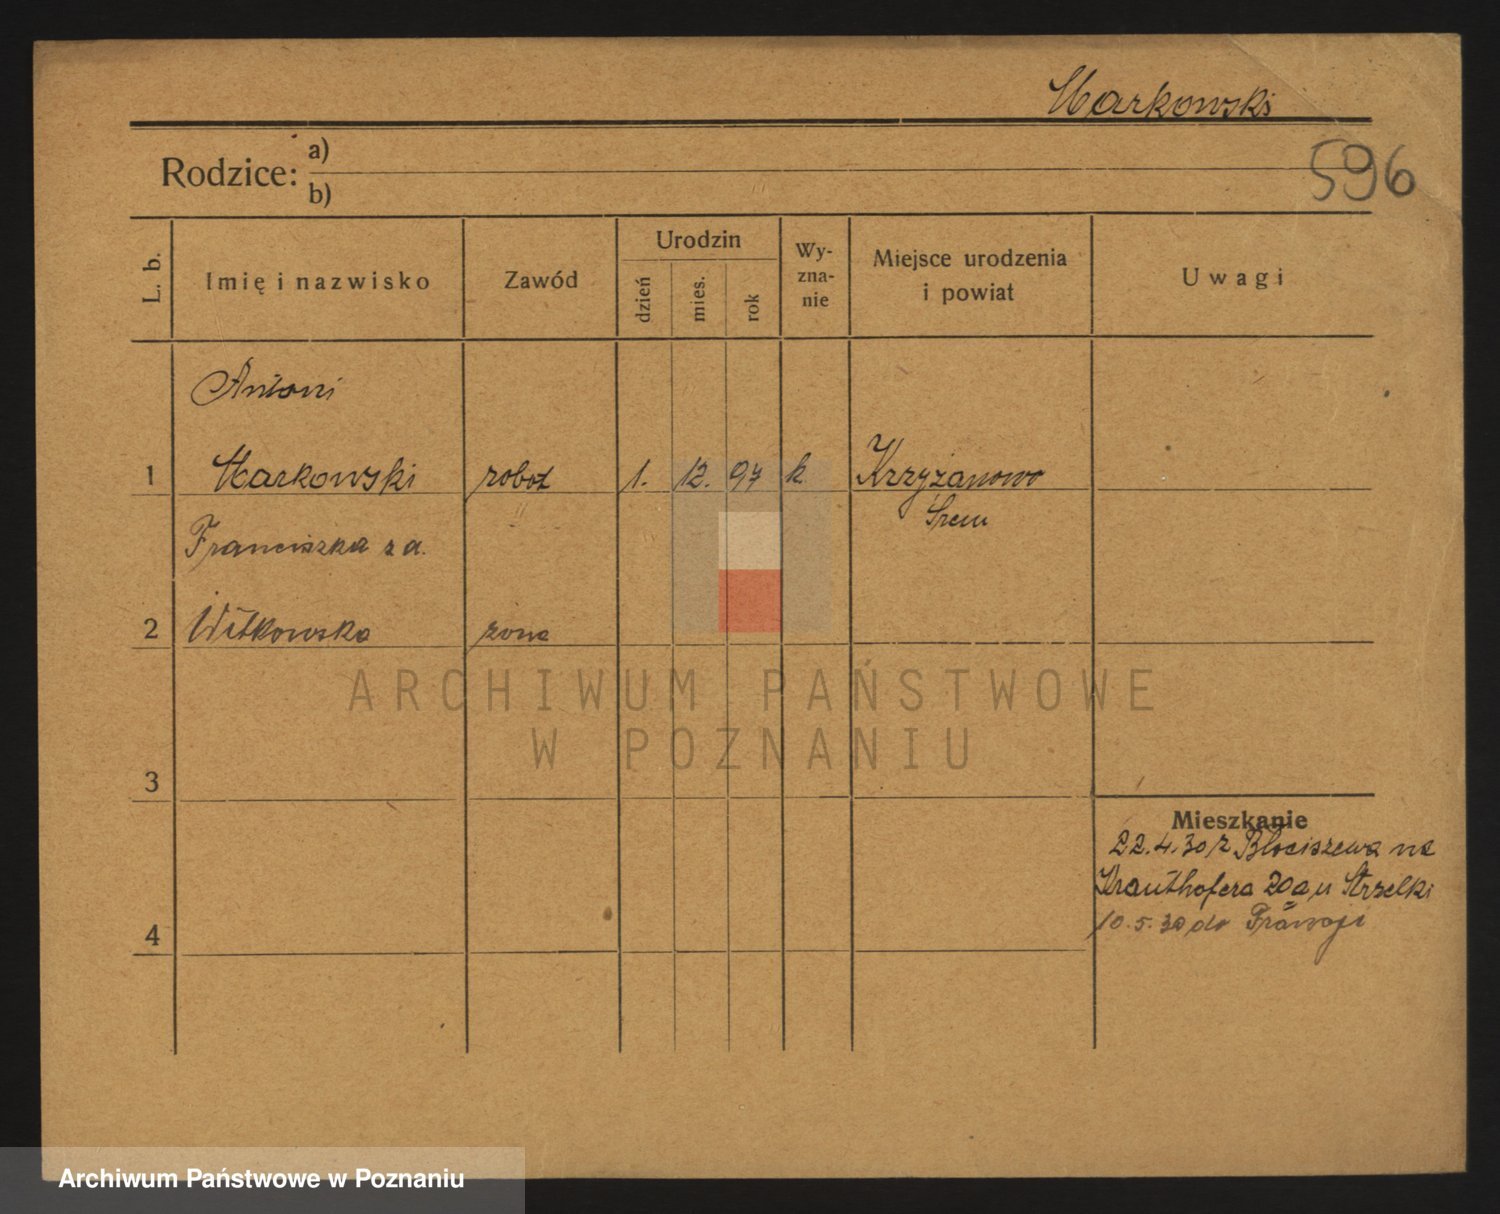 Markowski
596
Rodzice: a)
b)
L. b. Imię i nazwisko Zawód Urodzin dzień mies. rok Wy-zna-nie Miejsce urodzenia i powiat Uwagi
Antoni
1 Markowski robot 1. 12. 97 k Krzyżanowo
Śrem
Franciszka z d.
2 Witkowska żona
ARCHIWUM PAŃSTWOWE
W POZNANIU
3
Mieszkanie
22.4.30 z Błociszewa na
Krauthofera 20a u Strzelki
4 10.5.30 do
Archiwum Państwowe w Poznaniu